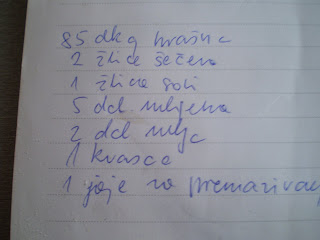 85 dkg brašna
2 žlice šečera
1 žlica soli
5 dcl mlijeka
2 dcl ulja
1 kvasac
1 jaje za premazivanj